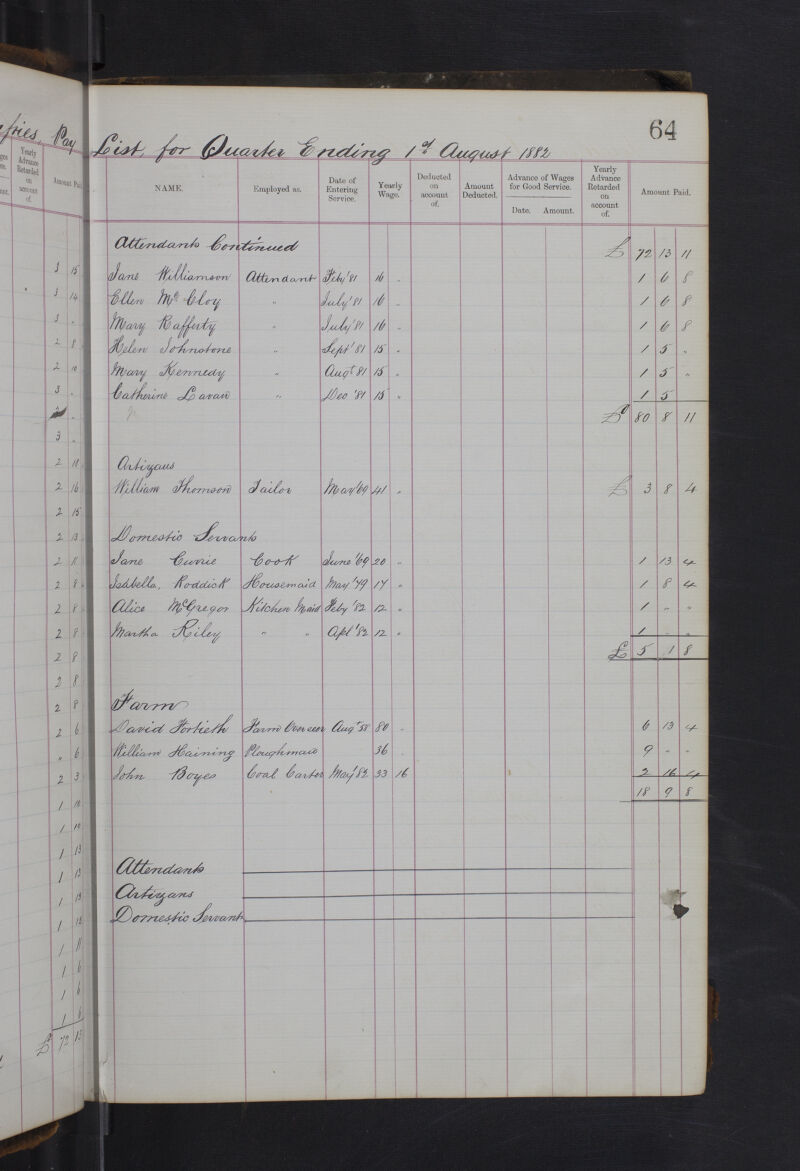 64
fries, Pay List, for Quarter Ending 1st August 1882
NAME. Employed as. Date of Entering Service. Yearly Wage. Deducted on account of. Amount Deducted. Advance of Wages for Good Service. Date. Amount. Yearly Advance Retarded on account of. Amount Paid.
Attendants Continued £ 72 13 11
Jane Williamson Attendant Feby '81 16 - 1 6 8
Ellen McCloy " July '81 16 - 1 6 8
Mary Rafferty " July '81 16 - 1 6 8
Helen Johnstone " Sept '81 15 " 1 5 "
Mary Kennedy " Augt 81 15 " 1 5 "
Catherine Lavan " Dec '81 15 " 1 5
£ 80 8 11
Artizans
William Thomson Tailor May '69 41 " £ 3 8 4
Domestic Servants
Jane Currie Cook June '69 20 " 1 13 4
Isabella, Roddick Housemaid May '79 17 " 1 8 4
Alice McGregor Kitchen Maid Feby '82 12 " 1 " "
Martha Riley " " Apl '82 12 " 1 " "
£ 5 1 8
Farm
David Fortieth Farm Overseer Augt 58 80 - 6 13 4
William Haining Ploughman 36 9 " "
John Boyes Coal Carter May '82 33 16 2 16 4
18 9 8
Attendants
Artizans
Domestic Servants
Yearly Advance Retarded on account of. Amount Paid
3 15
3 14
3 "
2 8
2 10
3 "
3 "
2 18
2 16
2 15
2 13
2 11
2 8
2 8
2 8
2 8
2 8
2 8
2 6
" 6
2 3
1 18
1 18
1 13
1 13
1 13
1 12
1 11
1 6
1 6
1 6
£ 72 13